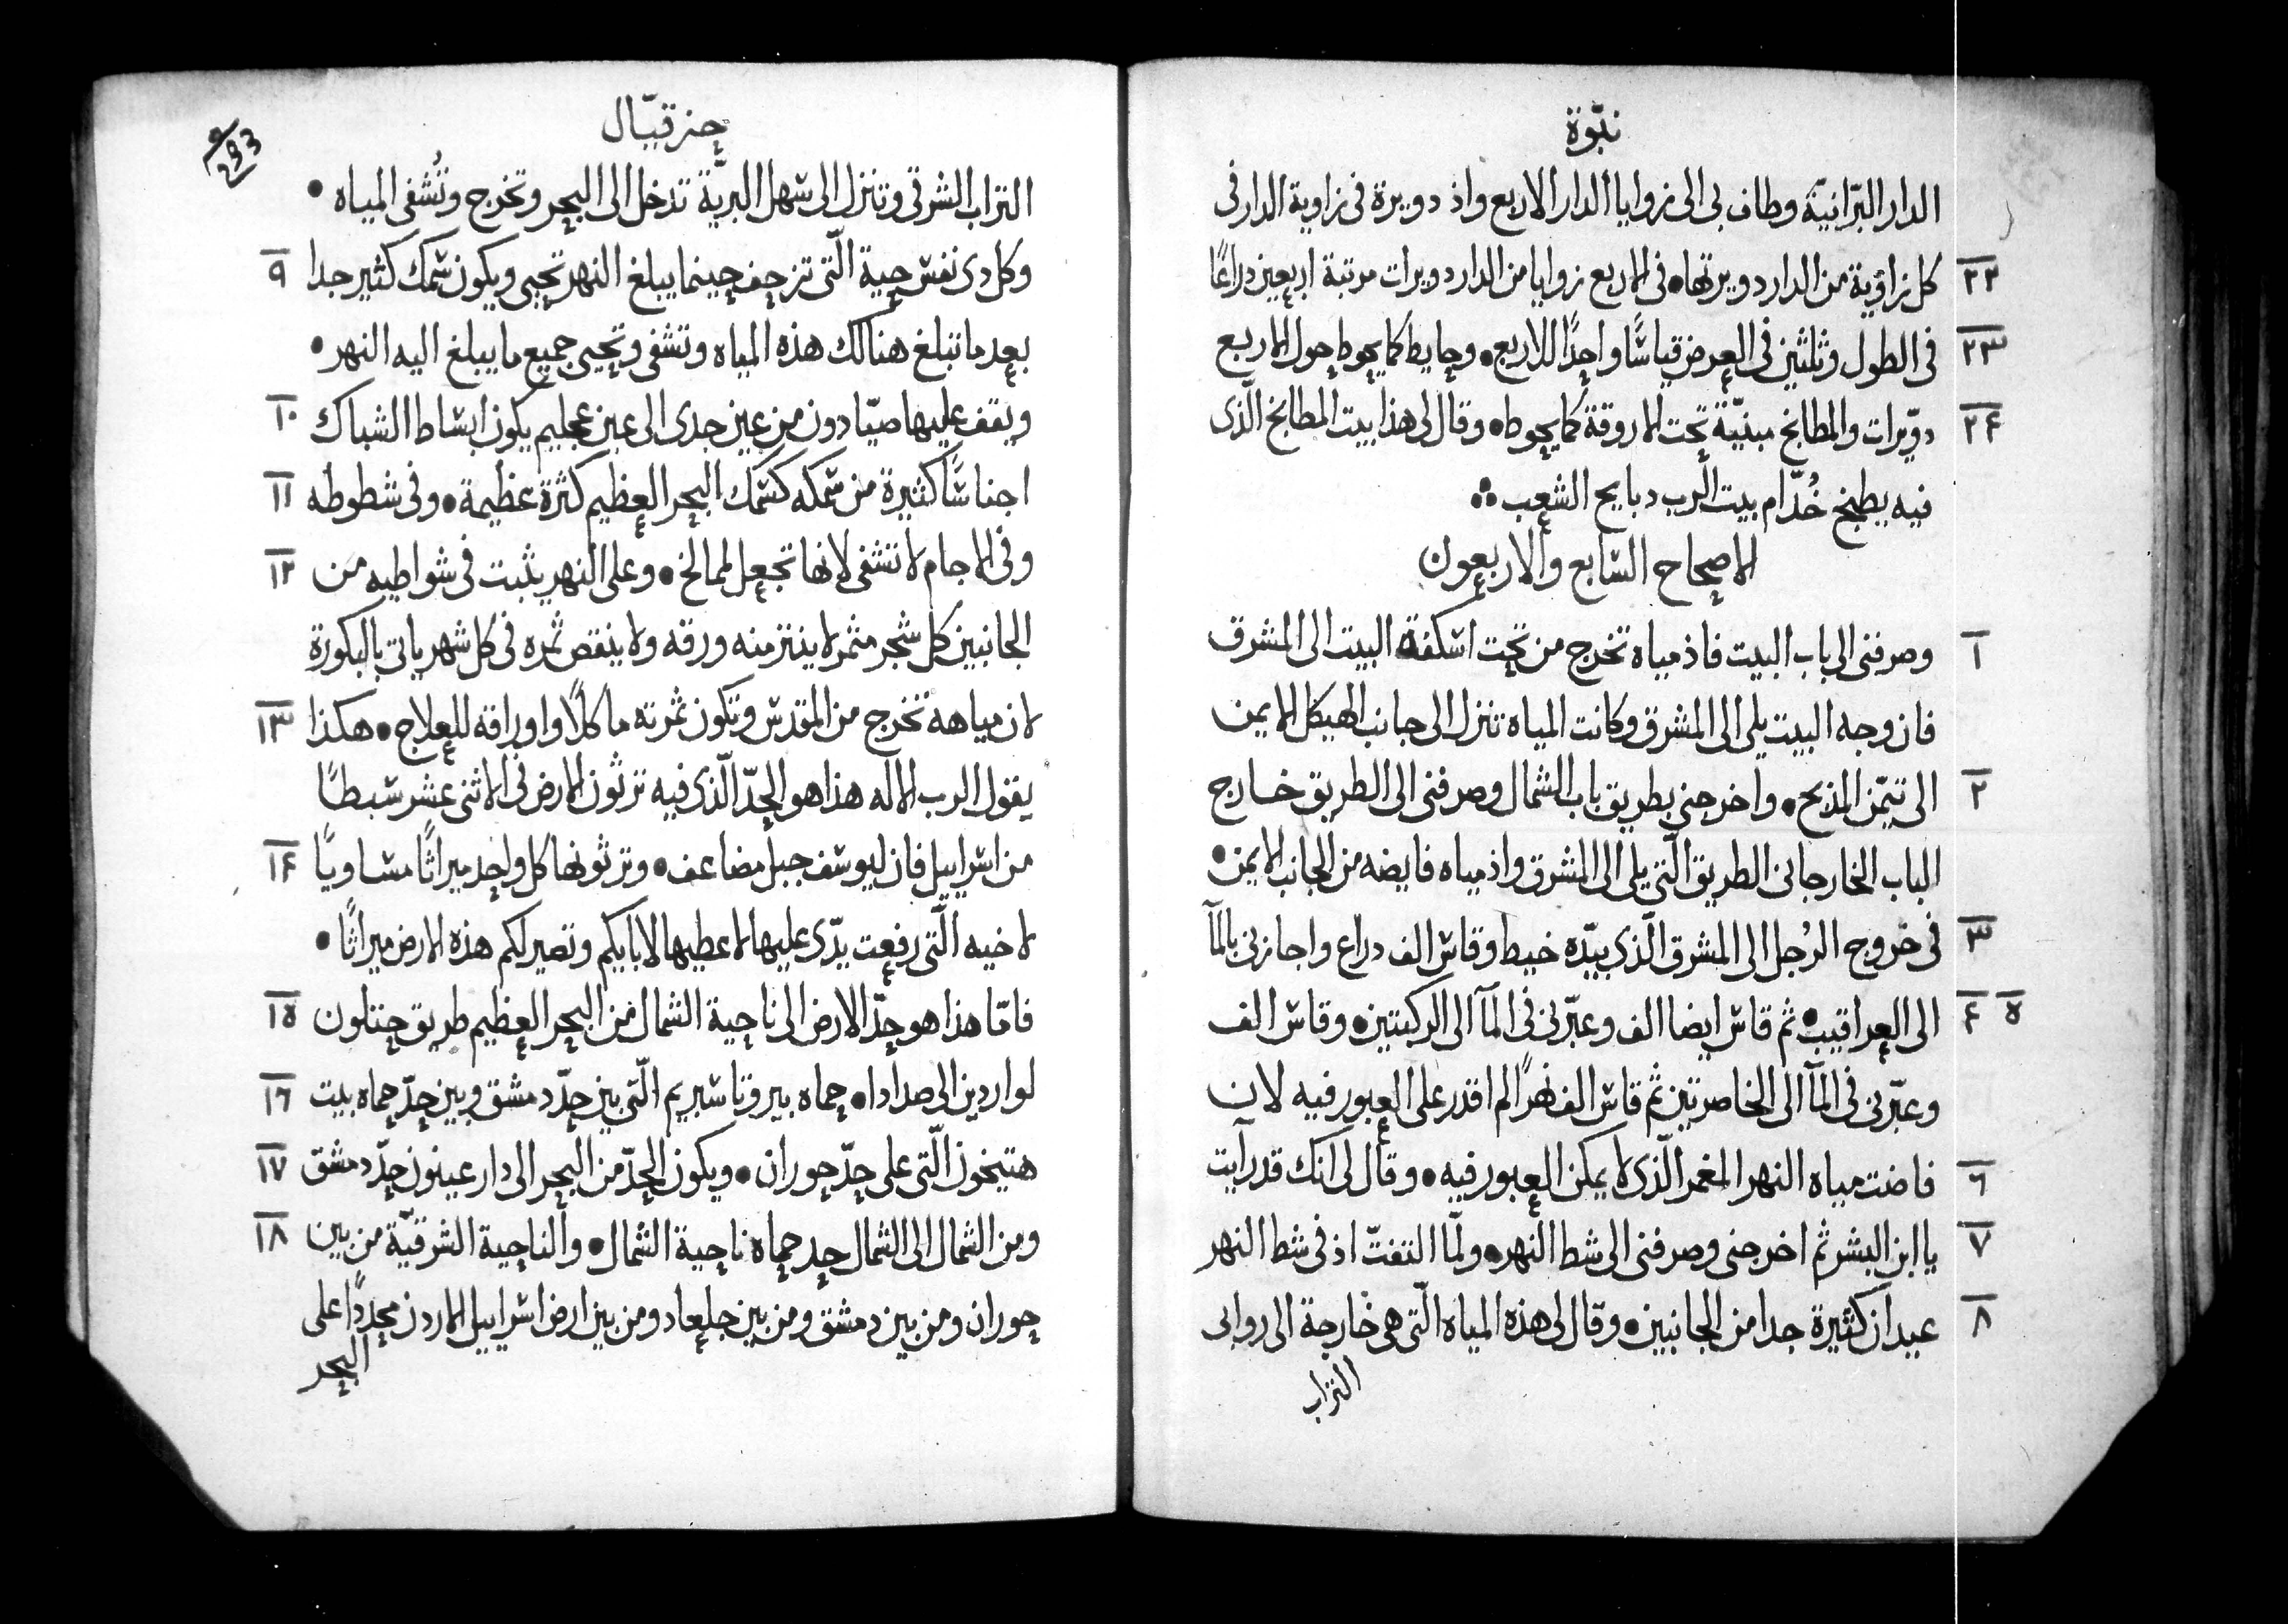 نبّوة
الدار البّرانيّة وطاف بى الى زوايا الدار الاربع واذ دويرة فى زاوية الدار فى
٢٢ كل زاوية من الدار دويرتها • فى الاربع زوايا من الدار دويرات مرتبة اربعين دراعًا
٢٣ فى الطول وثلثين فى العرض قياسًا واحدًا للاربع • وحايط كما يحوط حول الاربع
٢٤ دوّيرات والمطابخ مبنيّة تحت الاروقة كما يحوط • وقال لى هذا بيت المطابخ الّذى
فيه يطبخ خُدّام بيت الرب دبايح الشعب ∴
الاصحاح السابع والاربعون
١ وصرفنى الى باب البيت فاذ مياه تخرج من تحت اسكفة البيت الى المشرق
فان وجه البيت يلى الى المشرق وكانت المياه تنزل الى جانب الهيكل الايمن
٢ الى تيمّن المذبح • واخرجنى بطريق باب الشمال وصرفنى الى الطريق خارج
الباب الخارجانى الطريق الّتى يلى الى المشرق واذ مياه فايضه من الجانب الايمن •
٣ فى خروج الرُجل الى المشرق الّذى بيّده خيط وقاس الف دراع واجازنى بالمآ
٥ ٤ الى العراقيب • ثم قاس ايضا الف وعبّرنى فى المآ الى الركبتين • وقاس الف
وعبّرنى فى المآ الى الخاصرتين ثم قاس الف نهرًا لم اقدر على العبور فيه لان
٦ فاضت مياه النهر المغمر الّذى لا يمكن العبور فيه • وقال لى انك قد رآيت
٧ يا ابن البشر ثم اخرجنى وصرفنى الى شط النهر • ولمّا التفتّ اذ فى شط النهر
٨ عيدان كثيرة جدا من الجانبين • وقال لى هذه المياه الّتى هى خارجة الى روابى
التراب
حزقيّال
293
التراب الشرقى وتنزل الى سهل البريّة تدخل الى البحر وتخرج وتُشفى المياه •
وكل دى نفس حية الّتى تزحف حينما يبلغ النهر تحيى ويكون سمك كثير جدا ٩
بعد ما تبلغ هنالك هذه المياه وتشفى وتحيى جميع ما يبلغ اليه النهر •
ويقف عليها صيّادون من عين جدى الى عين عجليم يكون ابساط الشباك ١٠
اجناسًا كثيرة من سمكه كسمك البحر العظيم كثرة عظيمة • وفى شطوطه ١١
وفى الاجام لا تشفى لانها تجعل لممالخ • وعلى النهر يثبت فى شواطيه من ١٢
الجانبين كل شجر مثمر لا ينتزمنه ورقه ولا ينقص ثمره فى كل شهر ياتى بالبكورة
لان مياهه تخرج من المقدس وتكون ثمرته ماكلًا واوراقه للعلاج • هكذا ١٣
يقول الرب الاله هذا هو الحدّ الّذى فيه ترثون الارض فى الاثنى عشر سبطًا
من اسراييل فان ليوسف حبل مضاعف • وترثونها كل واحد ميراثًا مساويًا ١٤
لاخيه الّتى رفعت يدّى عليها لاعطيها لابايكم وتصير لكم هذه الارض ميراثًا •
فامّا هذا هو حدّ الارض الى ناحية الشمال من البحر العظيم طريق حتلون ١٥
لواردين الى صدادا • حماه بيروتا سبريم الّتى بين حدّ دمشق وبين حدّ حماه بيت ١٦
هتيخون الّتى على حدّ حوران • ويكون الحدّ من البحر الى دار عينون حدّ دمشق ١٧
ومن الشمال الى الشمال حد حماه ناحية الشمال • والناحية الشرقيّة من بين ١٨
حوران ومن بين دمشق ومن بين جلعاد ومن بين ارض اسراييل الاردن محددًا على
البحر